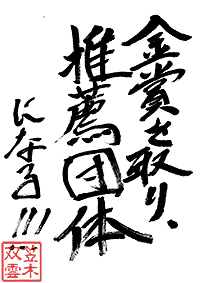 金賞を取り、
推薦団体
になる!!!
笠木
双雲